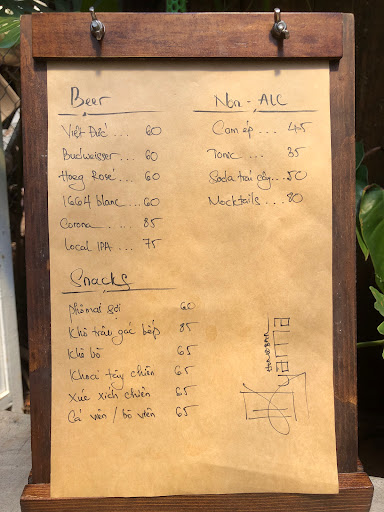 Beer
Việt Đức .... 60
Budweisser ... 60
Hoeg Rosé .... 60
1664 blanc ... 60
Corona ...... 85
Local IPA .... 75
Snacks
phômai sợi 60
Khô trâu gác bếp 85
Khô bò 65
Khoai tây chiên 65
Xúc xích chiên 65
Cá viên / bò viên 65
Non - ALC
Cam ép .... 45
Tonic .... 35
Soda trái cây ... 50
Mocktails ... 80